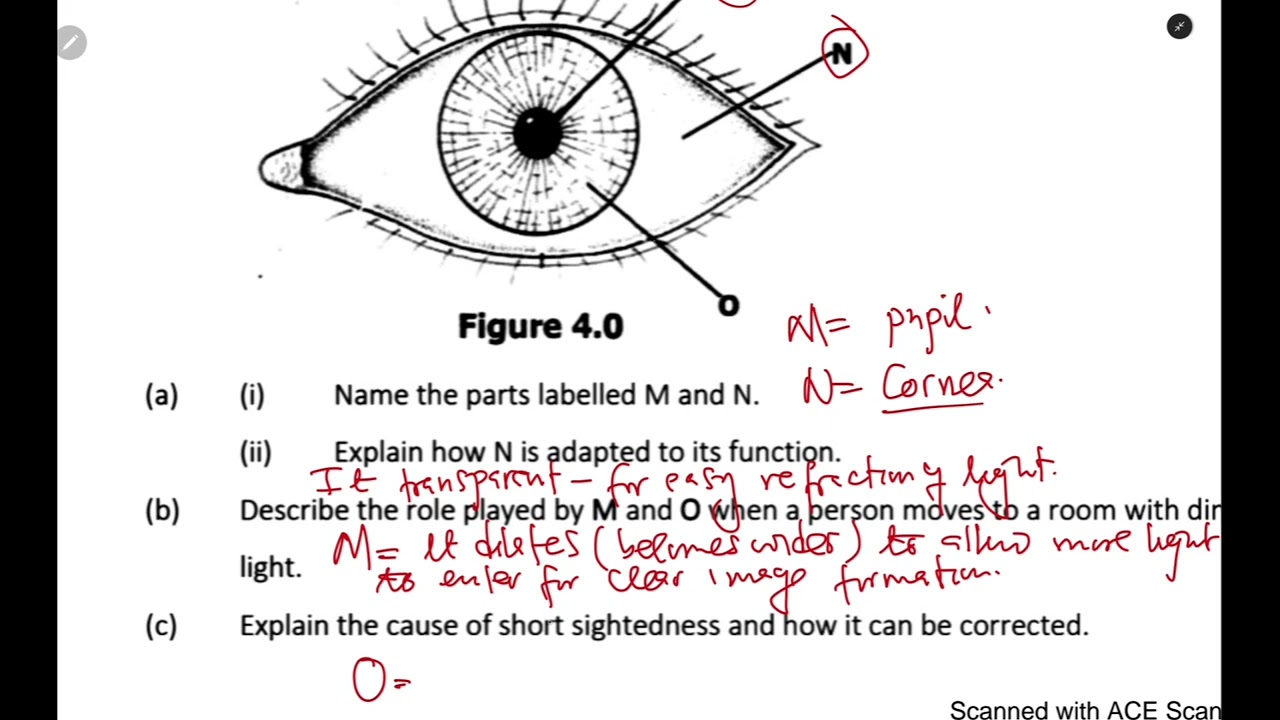 N
O
Figure 4.0
M= pupil.
(a) (i) Name the parts labelled M and N.
N= Cornea.
(ii) Explain how N is adapted to its function.
It transparent - for easy refraction of light.
(b) Describe the role played by M and O when a person moves to a room with dim
light.
M= it dilates (becomes wider) to allow more light
to enter for clear image formation.
(c) Explain the cause of short sightedness and how it can be corrected.
O=
Scanned with ACE Scan